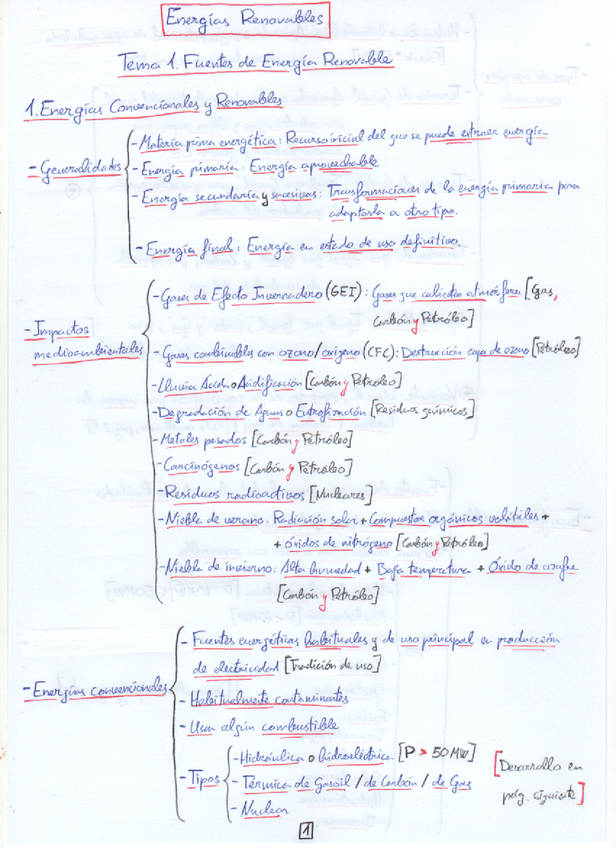 Energías Renovables
Tema 1. Fuentes de Energía Renovable
1. Energías Convencionales y Renovables
- Generalidades
- Materia prima energética: Recurso inicial del que se puede extraer energía
- Energía primaria: Energía aprovechable
- Energía secundaria y sucesivas: Transformaciones de la energía primaria para
adaptarla a otro tipo.
- Energía final: Energía en estado de uso definitivo.
- Impactos
medioambientales
- Gases de Efecto Invernadero (GEI): Gases que calientan atmósfera [Gas,
Carbón y Petróleo]
- Gases combinables con ozono/oxígeno (CFC): Destrucción capa de ozono [Petróleo]
- Lluvia Ácida o Acidificación [Carbón y Petróleo]
- Degradación de Aguas o Eutrofización [Residuos químicos]
- Metales pesados [Carbón y Petróleo]
- Carcinógenos [Carbón y Petróleo]
- Residuos radioactivos [Nucleares]
- Niebla de verano: Radiación solar + Compuestos orgánicos volátiles +
+ óxidos de nitrógeno [Carbón y Petróleo]
- Niebla de invierno: Alta humedad + Baja temperatura + Óxido de azufre
[Carbón y Petróleo]
- Energías convencionales
- Fuentes energéticas habituales y de uso principal en producción
de electricidad [Tradición de uso]
- Habitualmente contaminantes
- Usan algún combustible
- Tipos
- Hidráulica o hidroeléctrica [P > 50 MW]
- Térmica de Gasoil / de Carbón / de Gas
- Nuclear
[Desarrollo en
pág. siguiente]
1